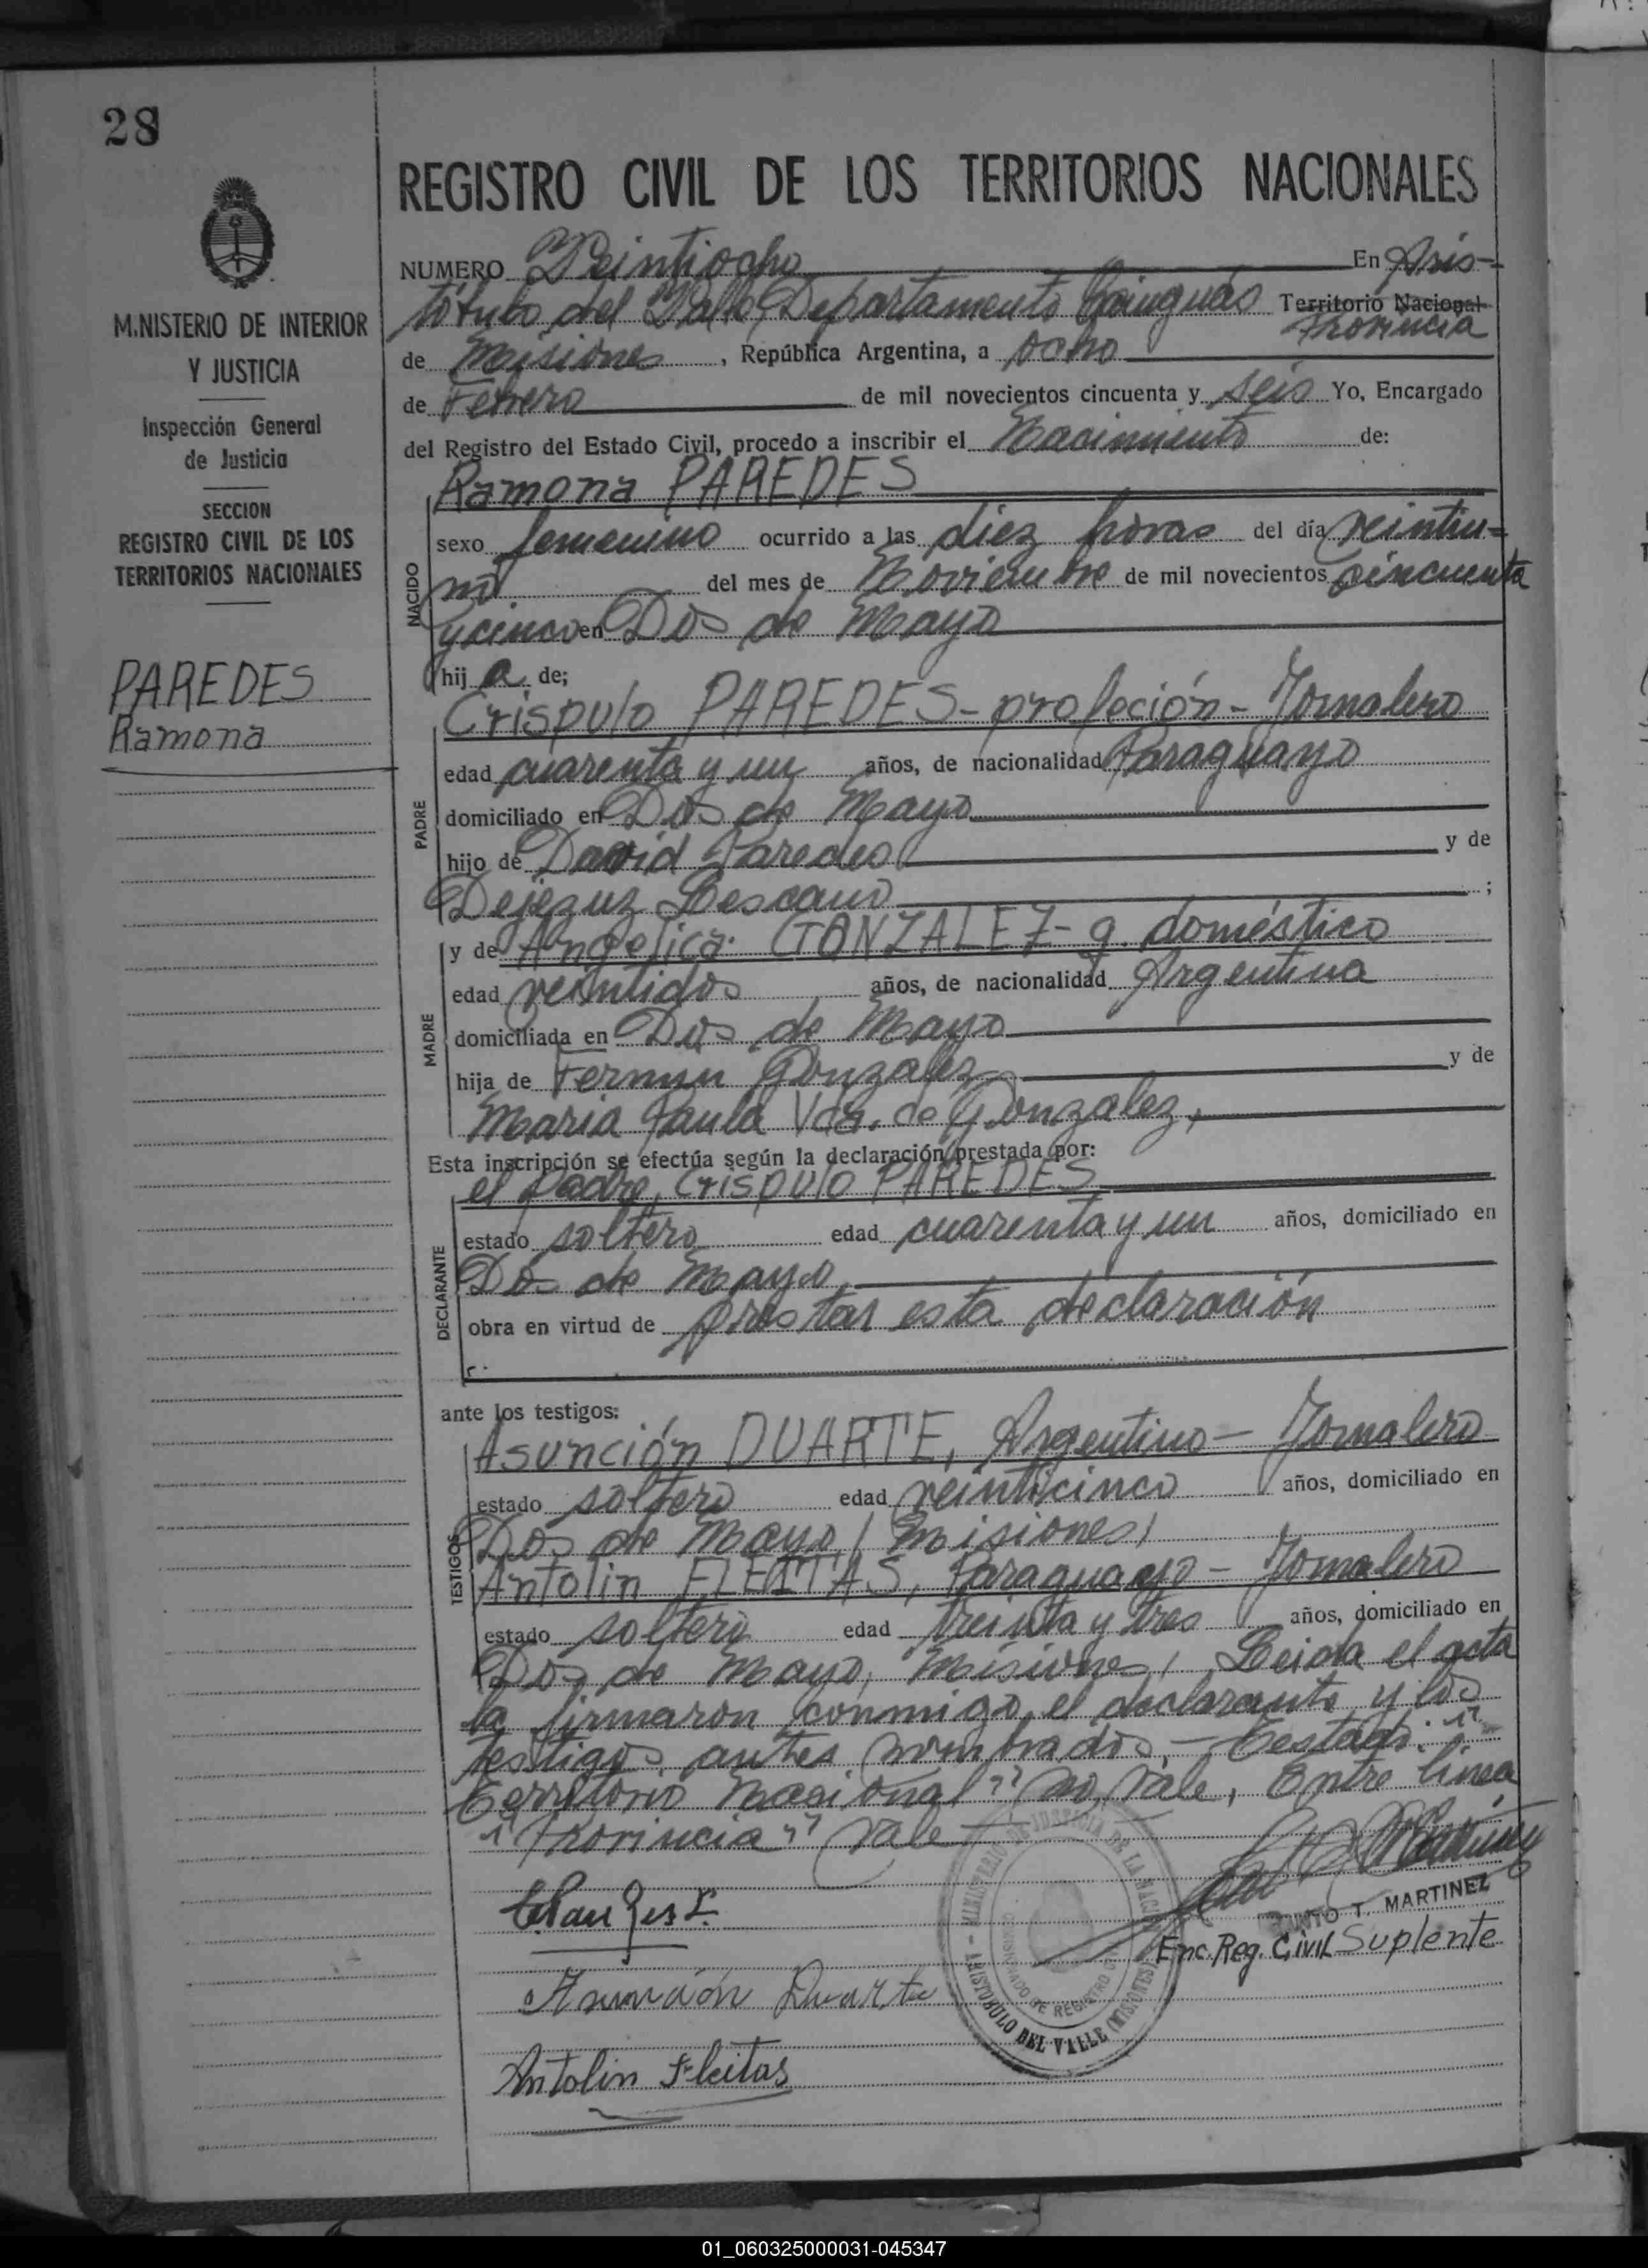 28
MINISTERIO DE INTERIOR
Y JUSTICIA
Inspección General
de Justicia
SECCION
REGISTRO CIVIL DE LOS
TERRITORIOS NACIONALES
PAREDES
Ramona
REGISTRO CIVIL DE LOS TERRITORIOS NACIONALES
NUMERO Veintiocho En Aris-
tóbulo del Valle, Departamento Cainguás Territorio Nacional
Provincia
de Misiones, República Argentina, a ocho
de Febrero de mil novecientos cincuenta y seis Yo, Encargado
del Registro del Estado Civil, procedo a inscribir el Nacimiento de:
Ramona PAREDES
NACIDO
sexo femenino ocurrido a las diez horas del día veintiu-
no del mes de Noviembre de mil novecientos cincuenta
y cinco en Dos de Mayo
hij a de;
Crispulo PAREDES - profeción - Jornalero
PADRE
edad cuarenta y un años, de nacionalidad Paraguayo
domiciliado en Dos de Mayo
hijo de David Paredes y de
Dejezuz Lescano ;
y de Angelica GONZALEZ - q. doméstico
MADRE
edad veintidos años, de nacionalidad Argentina
domiciliada en Dos de Mayo
hija de Fermin Gonzalez y de
Maria Paula Vda. de Gonzalez,
Esta inscripción se efectúa según la declaración prestada por:
el Padre, Crispulo PAREDES
DECLARANTE
estado soltero edad cuarenta y un años, domiciliado en
Dos de Mayo,
obra en virtud de prestar esta declaración
ante los testigos:
Asunción DUARTE, Argentino - Jornalero
TESTIGOS
estado soltero edad veinticinco años, domiciliado en
Dos de Mayo, Misiones,
Antolin FLEITAS, Paraguayo - Jornalero
estado soltero edad treinta y tres años, domiciliado en
Dos de Mayo, Misiones, Leida el acta
la firmaron conmigo, el declarante y los
testigos antes nombrados. - Testado: "
Territorio Nacional" no vale, Entre linea
"Provincia" vale
MINISTERIO DE JUSTICIA DE LA NACION
REGISTRO
ARISTOBULO DEL VALLE (MISIONES)
T. MARTINEZ
Enc. Reg. Civil Suplente
Asunción Duarte
Antolin Fleitas
01_060325000031-045347